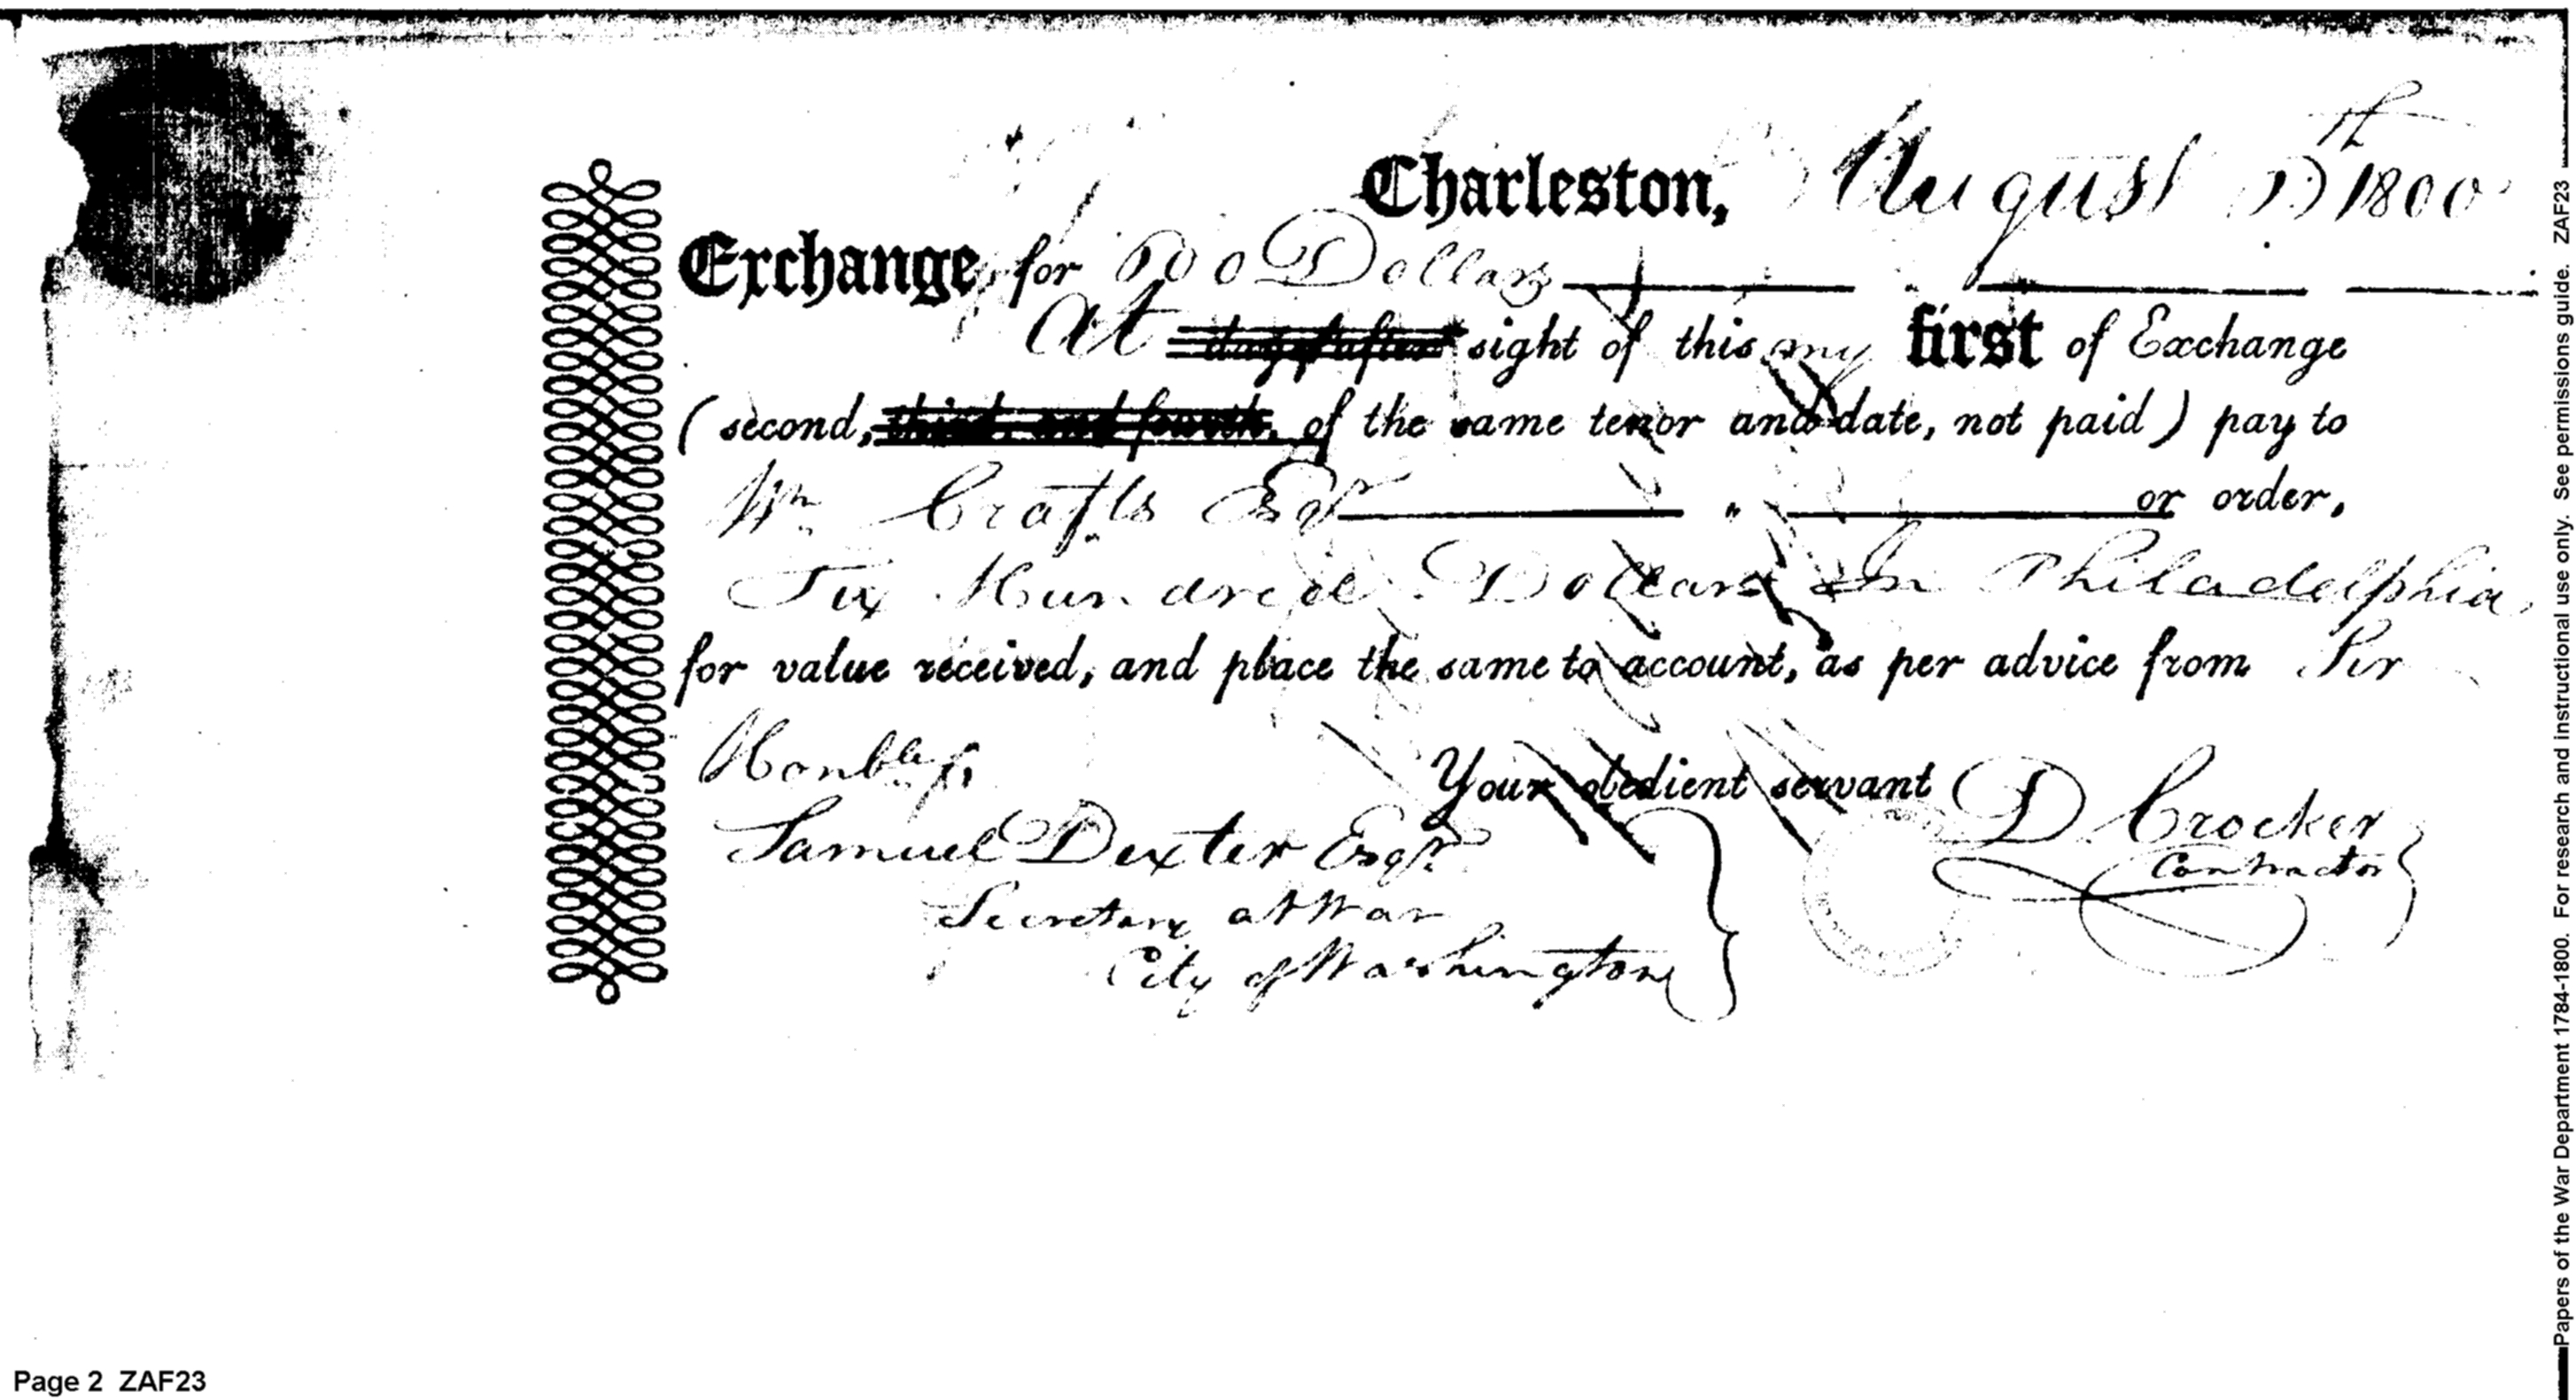 Charleston, August th 1800
Exchange for 600 Dollars
At days after sight of this my first of Exchange
(second, third, and fourth, of the same tenor and date, not paid) pay to
Wm Crafts Esqr or order,
Six Hundred Dollars In Philadelphia
for value received, and place the same to account, as per advice from Sir
Honble
Your obedient servant
D Crocker
Contractor
Samuel Dexter Esqr
Secretary at War
City of Washington
Page 2 ZAF23
Papers of the War Department 1784-1800. For research and instructional use only. See permissions guide. ZAF23